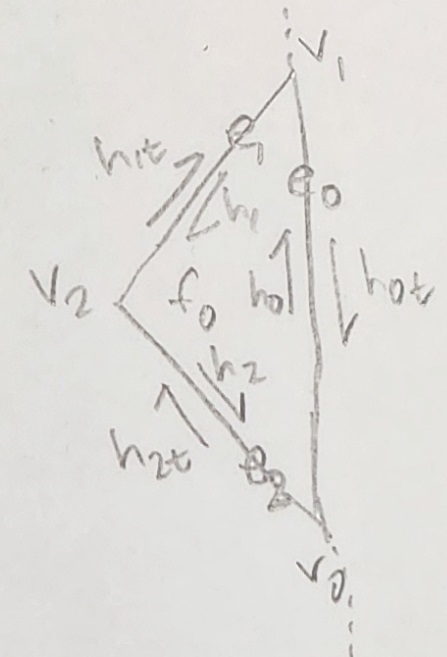 v1
e1
h1t
e0
h1
v2
f0
h0
h0t
h2
h2t
e2
v0